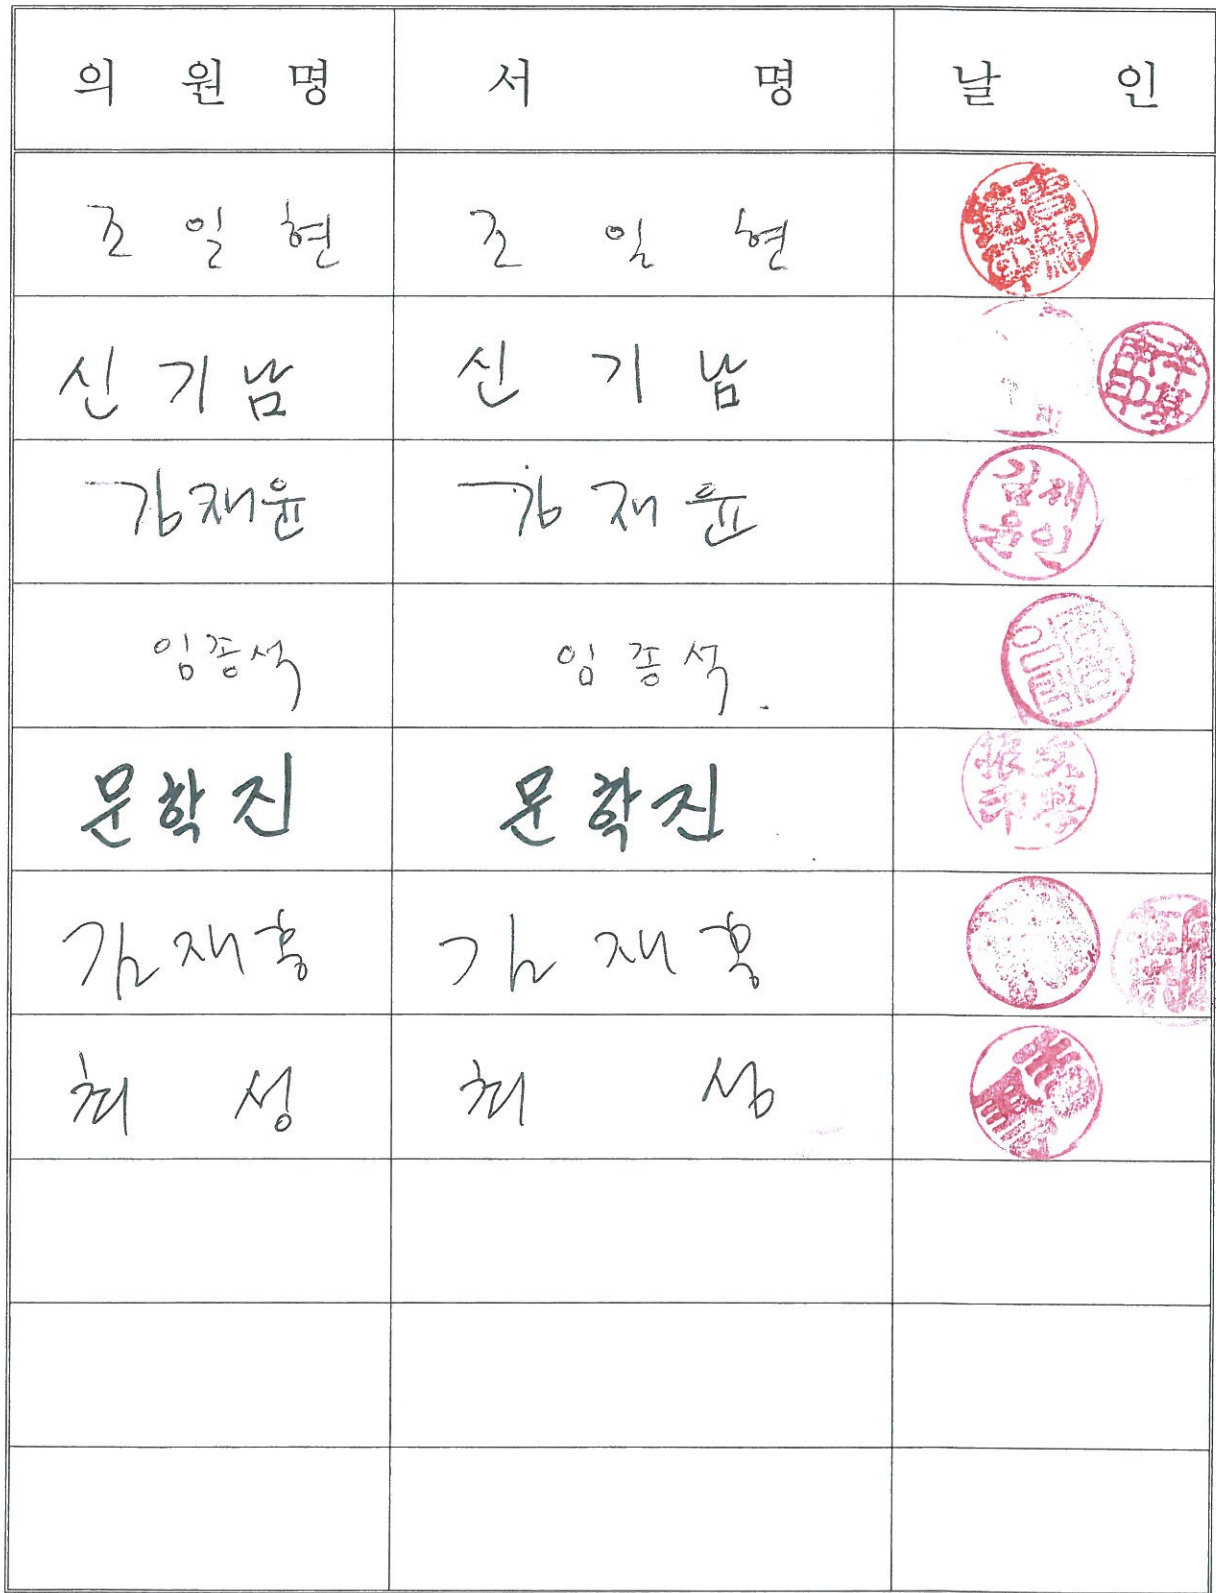 의 원 명 서 명 날 인
조 일 현 조 일 현
신 기 남 신 기 남
김재윤 김 재 윤 김재윤인
임종석 임 종 석.
문학진 문학진 文學振印
김재홍 김 재 홍
최 성 최 성